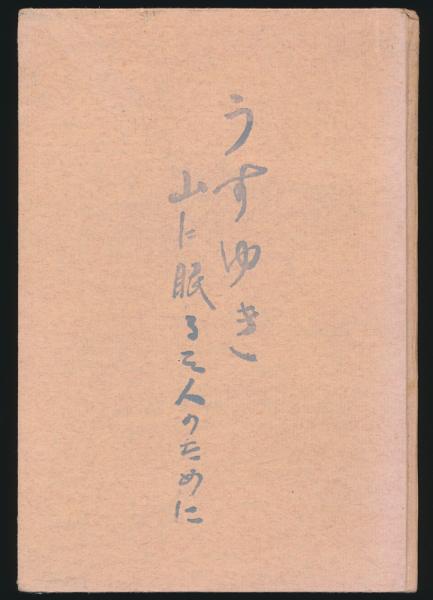 うすゆき
山に眠る三人のために